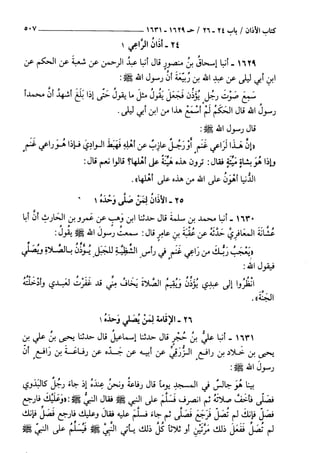 كتاب الأذان / باب ٢٤ - ٢٦ / حـ ١٦٢٩ - ١٦٣١ ٥٠٧
٢٤ - أَذَانُ الرَّاعِي
١٦٢٩ - أنبا إسحاق بن منصور قال أنبا عبد الرحمن عن شعبة عن الحكم عن
ابن أبي ليلى عن عبد الله بن رُبَيِّعَة أن رسول الله ﷺ:
سَمِعَ صَوْتَ رجلٍ يُؤَذِّن فَجَعَلَ يقولُ مثلَ ما يقولُ حَتَّى إذا بَلَغَ أشهدُ أنَّ محمداً
رسول الله قال الحَكَمُ لَمْ أَسْمَعْ هذا من ابن أبي ليلى.
قال رسول الله ﷺ:
«إِنَّ هَـذَا لَرَاعِي غَنَمٍ أَوْ رَجُلٌ عازبٌ عن أهلِهِ فَهَبَطَ الوادِيَ فـإذا هُـوَ راعي غَنَمٍ
وإذا هُوَ بشاةٍ مَيْتَةٍ فقال: ترون هذه هَيِّنَةً على أهلها؟ قالوا نعم قال:
الدُّنيا أَهْوَنُ على الله من هذه على أهلها».
٢٥ - الأذَانُ لِمَنْ صَلَّى وَحْدَهُ
١٦٣٠ - أنبا محمد بن سلمة قال حدثنا ابن وَهبٍ عن عمرو بن الحارث أنَّ أبا
عُشَّانَةَ المعافريَّ حَدَّثَهُ عن عُقْبَةَ بنِ عامِرٍ قال: سمعتُ رسولَ الله ﷺ يقُولُ:
«يَعْجَبُ رَبُّـكَ من رَاعِي غَنَمٍ في رأسِ الشَّظِيَّةِ للجَبَلِ يُـؤَذِّنُ بـالصَّـلاةِ ويُصَلِّي
فيقول الله:
انْظُرُوا إلى عبدي يُؤَذِّنُ ويُقِيمُ الصَّلاةَ يَخَافُ مِنِّي قد غَفَرْتُ لعَبـدي وأدْخَلْتُهُ
الجَنَّةَ».
٢٦ - الإقَامة لِمَنْ يُصَلي وَحدَهُ
١٦٣١ - أنبا عليُّ بنُ حُجْرٍ قال حدثنا إسماعيلُ قال حدثنا يحيى بن علي بن
يحيى بن خلاد بن رافع الزُّرَقيُّ عن أبيه عن جَدِّه عن رفاعَـةَ بن رَافـعٍ أنَّ
رسول الله ﷺ:
بينا هُوَ جالسٌ في المسجدِ يوماً قال رفاعةُ ونحنُ عندَهُ إذ جاءَ رجُلٌ كالبَدَوي
فصلَّى فأخَفَّ صَلاتَهُ ثم انصرف فَسَلَّمَ على النبي ﷺ فقال النبيُّ ﷺ: «وعَلَيْكَ فارجع
فَصَلِّ فإنَّكَ لم تُصَلِّ فَرَجَعَ فَصَلَّى ثم جاءَ فسَلَّم عليه فقال وعليك فارجع فَصَلِّ فإنك
لم تُصَلِّ فَفَعَلَ ذلك مَرَّتَيْنِ أو ثلاثاً كُلُّ ذلك يأتي النَّبِيَّ ﷺ فَيُسَلِّمُ على النبي ﷺ